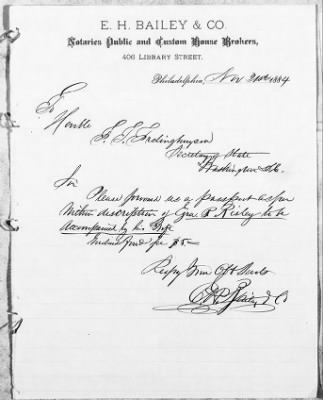 E. H. BAILEY & CO.
Notaries Public and Custom House Brokers,
406 LIBRARY STREET.
Philadelphia, Nov 21st 1884
To
Honble
F. T. Frelinghuysen
Secretary of State
Washington D.C.
Sir
Please forward us a passport as per
within description of Geo. P. Risley to be
Accompanied by his Wife
Enclosed find fee $5—
Respy Your Obt Servts
E. H. Bailey & Co